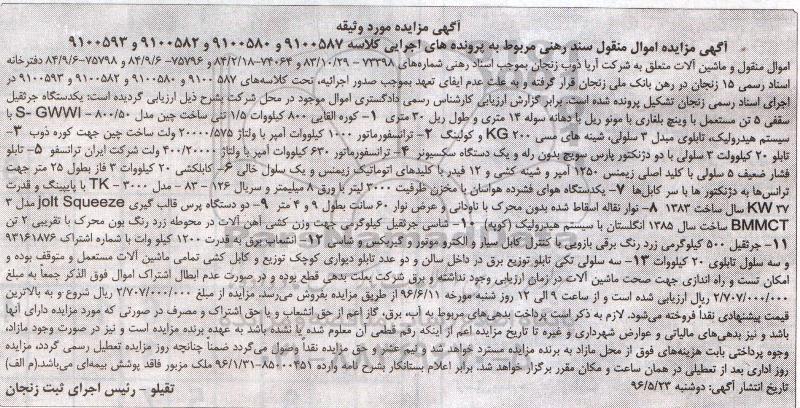 آگهی مزایده مورد وثیقه
آگهی مزایده اموال منقول سند رهنی مربوط به پرونده های اجرایی کلاسه ۹۱۰۰۵۸۷ و ۹۱۰۰۵۸۰ و ۹۱۰۰۵۸۲ و ۹۱۰۰۵۹۳
اموال منقول و ماشین آلات متعلق به شرکت آریا ذوب زنجان بموجب اسناد رهنی شماره‌های ۷۳۳۹۸ - ۸۳/۱۰/۲۹ و ۷۴۰۶۴-۸۴/۲/۱۸ و ۷۵۷۹۶-۸۴/۹/۶ و ۷۵۷۹۸-۸۴/۹/۶ دفترخانه
اسناد رسمی ۱۵ زنجان در رهن بانک ملی زنجان قرار گرفته و به علت عدم ایفای تعهد بموجب صدور اجرائیه، تحت کلاسه‌های ۹۱۰۰۵۸۷ و ۹۱۰۰۵۸۰ و ۹۱۰۰۵۸۲ و ۹۱۰۰۵۹۳ در
اجرای اسناد رسمی زنجان تشکیل پرونده شده است. برابر گزارش ارزیابی کارشناس رسمی دادگستری اموال موجود در محل شرکت بشرح ذیل ارزیابی گردیده است: یکدستگاه جرثقیل
سقفی ۵ تن مستعمل با وینچ بلغاری با مونو ریل با دهانه سوله ۱۴ متری و طول ریل ۳۰ متری ۱- کوره القایی ۸۰۰ کیلووات ۱/۵ تنی ساخت چین مدل ۸۰۰/۵۰ - S- GWWI با
سیستم هیدرولیک، تابلوی مبدل ۴ سلولی، شینه های مسی ۲۰۰ KG و کولینگ ۲- ترانسفورماتور ۱۰۰۰ کیلووات آمپر با ولتاژ ۲۰۰۰۰/۵۷۵ ولت ساخت چین جهت کوره ذوب ۳-
تابلو ۲۰ کیلوولت ۳ سلولی با دو دژنکتور پارس سویچ بدون رله و یک دستگاه سکسیونر ۴- ترانسفورماتور ۶۳۰ کیلووات آمپر با ولتاژ ۴۰۰/۲۰۰۰۰ ولت شرکت ایران ترانسفو ۵- تابلو
فشار ضعیف ۵ سلولی با کلید اصلی زیمنس ۱۲۵۰ آمپر و شینه کشی و ۱۲ فیدر با کلیدهای اتوماتیک زیمنس و یک سلول خالی ۶- کابلکشی ۲۰ کیلووات ۳ فاز بطول ۲۵ متر جهت
ترانس‌ها به دژنکتور ها با سر کابل‌ها ۷- یکدستگاه هوای فشرده هواسان با مخزن ظرفیت ۳۰۰۰ لیتر با ورق ۸ میلیمتر و سریال ۱۲۶ - ۸۳ - مدل ۳۰۰۰ - TK با پایپینگ و قدرت
۳۷ KW سال ساخت ۱۳۸۳ ۸- نوار نقاله اسقاط شده بدون محرک با ناودانی و عرض نوار ۶۰ سانت بطول ۹ و ۴ متر ۹- دو دستگاه پرس قالب گیری Jolt Squeeze مدل ۳
BMMCT سال ساخت ۱۳۸۵ انگلستان با سیستم هیدرولیک (کوپه) ۱۰- شاسی جرثقیل کیلوگرمی جهت وزن کشی آهن آلات در محوطه زرد رنگ بون محرک با تقریبی ۲ تن
۱۱- جرثقیل ۵۰۰ کیلوگرمی زرد رنگ برقی بازویی با کنترل و کابل سیار و الکترو موتور و گیربکس و شاسی ۱۲- انشعاب برق به قدرت ۱۲۰۰ کیلو وات با شماره اشتراک ۹۳۱۶۱۸۷۶
و سه سلول تابلوی ۲۰ کیلووات ۱۳- سه سلولی تکی تابلو توزیع برق در داخل سالن و دو عدد تابلو دیواری کوچک توزیع و کابل کشی تمامی ماشین آلات مستعمل و متوقف بوده و
امکان تست و راه اندازی جهت صحت ماشین آلات در زمان ارزیابی وجود نداشته و برق شرکت بعلت بدهی قطع بوده و در صورت عدم ابطال اشتراک اموال فوق الذکر جمعا به مبلغ
۲/۷۰۷/۰۰۰/۰۰۰ ریال ارزیابی شده است و از ساعت ۹ الی ۱۲ روز شنبه مورخه ۹۶/۶/۱۱ از طریق مزایده بفروش می‌رسد. مزایده از مبلغ ۲/۷۰۷/۰۰۰/۰۰۰ ریال شروع و به بالاترین
قیمت پیشنهادی نقدا فروخته می‌شود. لازم به ذکر است پرداخت بدهی‌های مربوط به آب، برق، گاز اعم از حق انشعاب و یا حق اشتراک و مصرف در صورتی که مورد مزایده دارای آنها
باشد و نیز بدهی‌های مالیاتی و عوارض شهرداری و غیره تا تاریخ مزایده اعم از اینکه رقم قطعی آن معلوم شده یا نشده باشد به عهده برنده مزایده است و نیز در صورت وجود مازاد،
وجوه پرداختی بابت هزینه‌های فوق از محل مازاد به برنده مزایده مسترد خواهد شد و نیم عشر و حق مزایده نقداً وصول می‌گردد ضمناً چنانچه روز مزایده تعطیل رسمی گردد، مزایده
روز اداری بعد از تعطیلی در همان ساعت و مکان مقرر برگزار خواهد شد. برابر اعلام بستانکار بشرح نامه وارده ۸۵۰۰۰۴۵۱-۹۶/۱/۳۱ ملک مزبور فاقد پوشش بیمه‌ای می‌باشد.(م الف)
تاریخ انتشار آگهی: دوشنبه ۹۶/۵/۲۳
تقیلو - رئیس اجرای ثبت زنجان